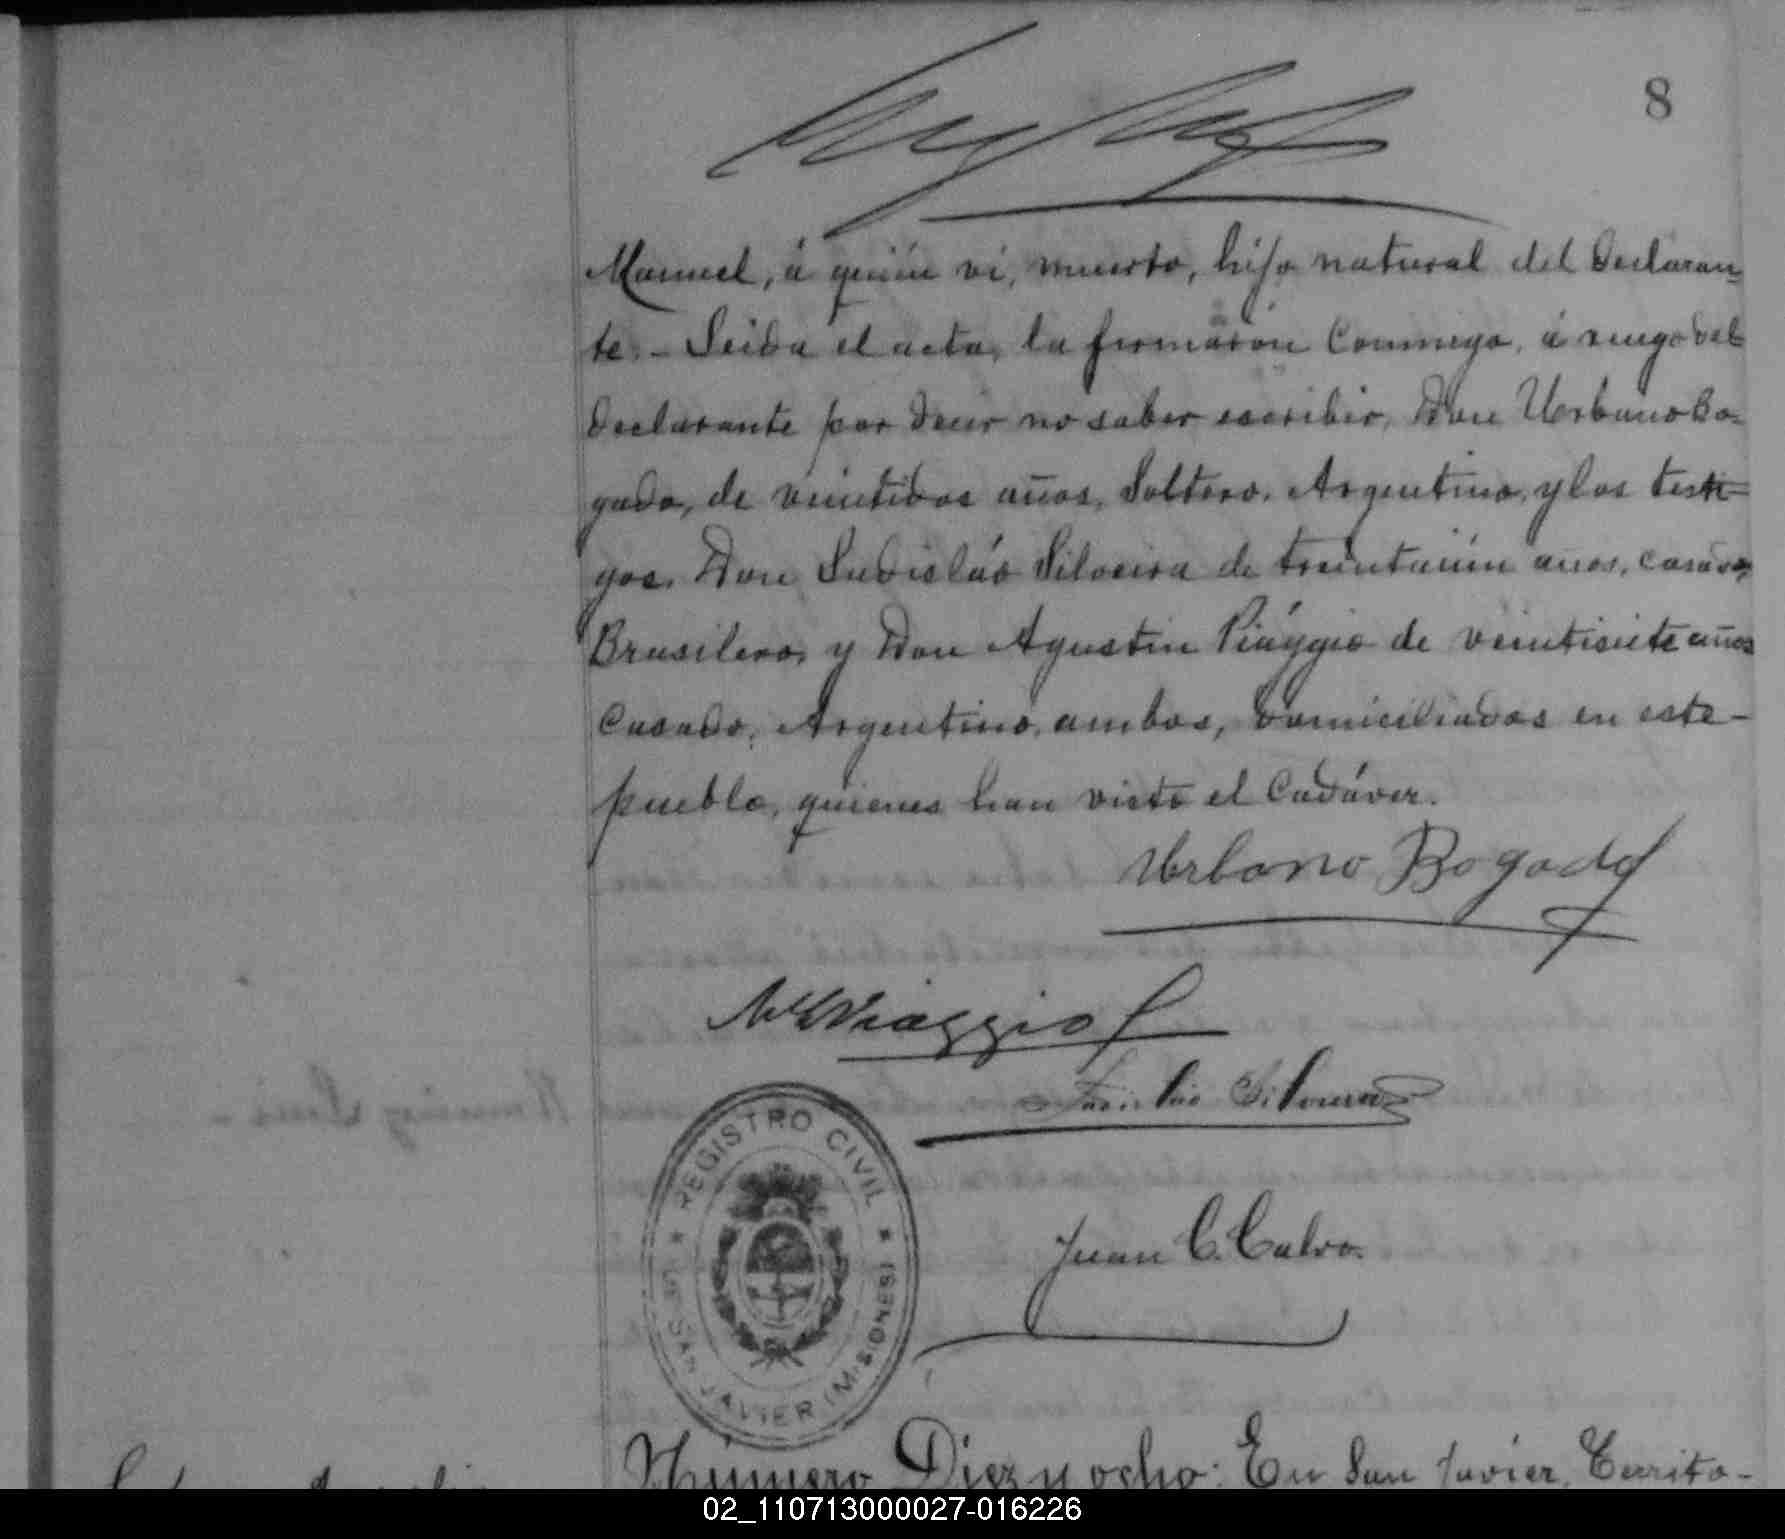 8
Manuel, á quién ví, muerto, hijo natural del Declaran=
te.- Leida el acta, la firmaron Conmigo, á ruego del
declarante por decir no saber escribir, Don Urbano Bo=
gado, de veintidos años, Soltero, Argentino, y los testi=
gos, Don Ladisláo Silveira de treintaiún años, casado,
Brasilero, y Don Agustin Piággio de veintisiete años
Casado, Argentino, ambos, domiciliados en este-
pueblo, quienes han visto el Cadáver.
Urbano Bogado
Piaggio
Ladislao Silveira
REGISTRO CIVIL
DE SAN JAVIER (MISIONES)
Juan C. Calvo.
Número Diez y ocho: En San Javier, Territo-
02_110713000027-016226